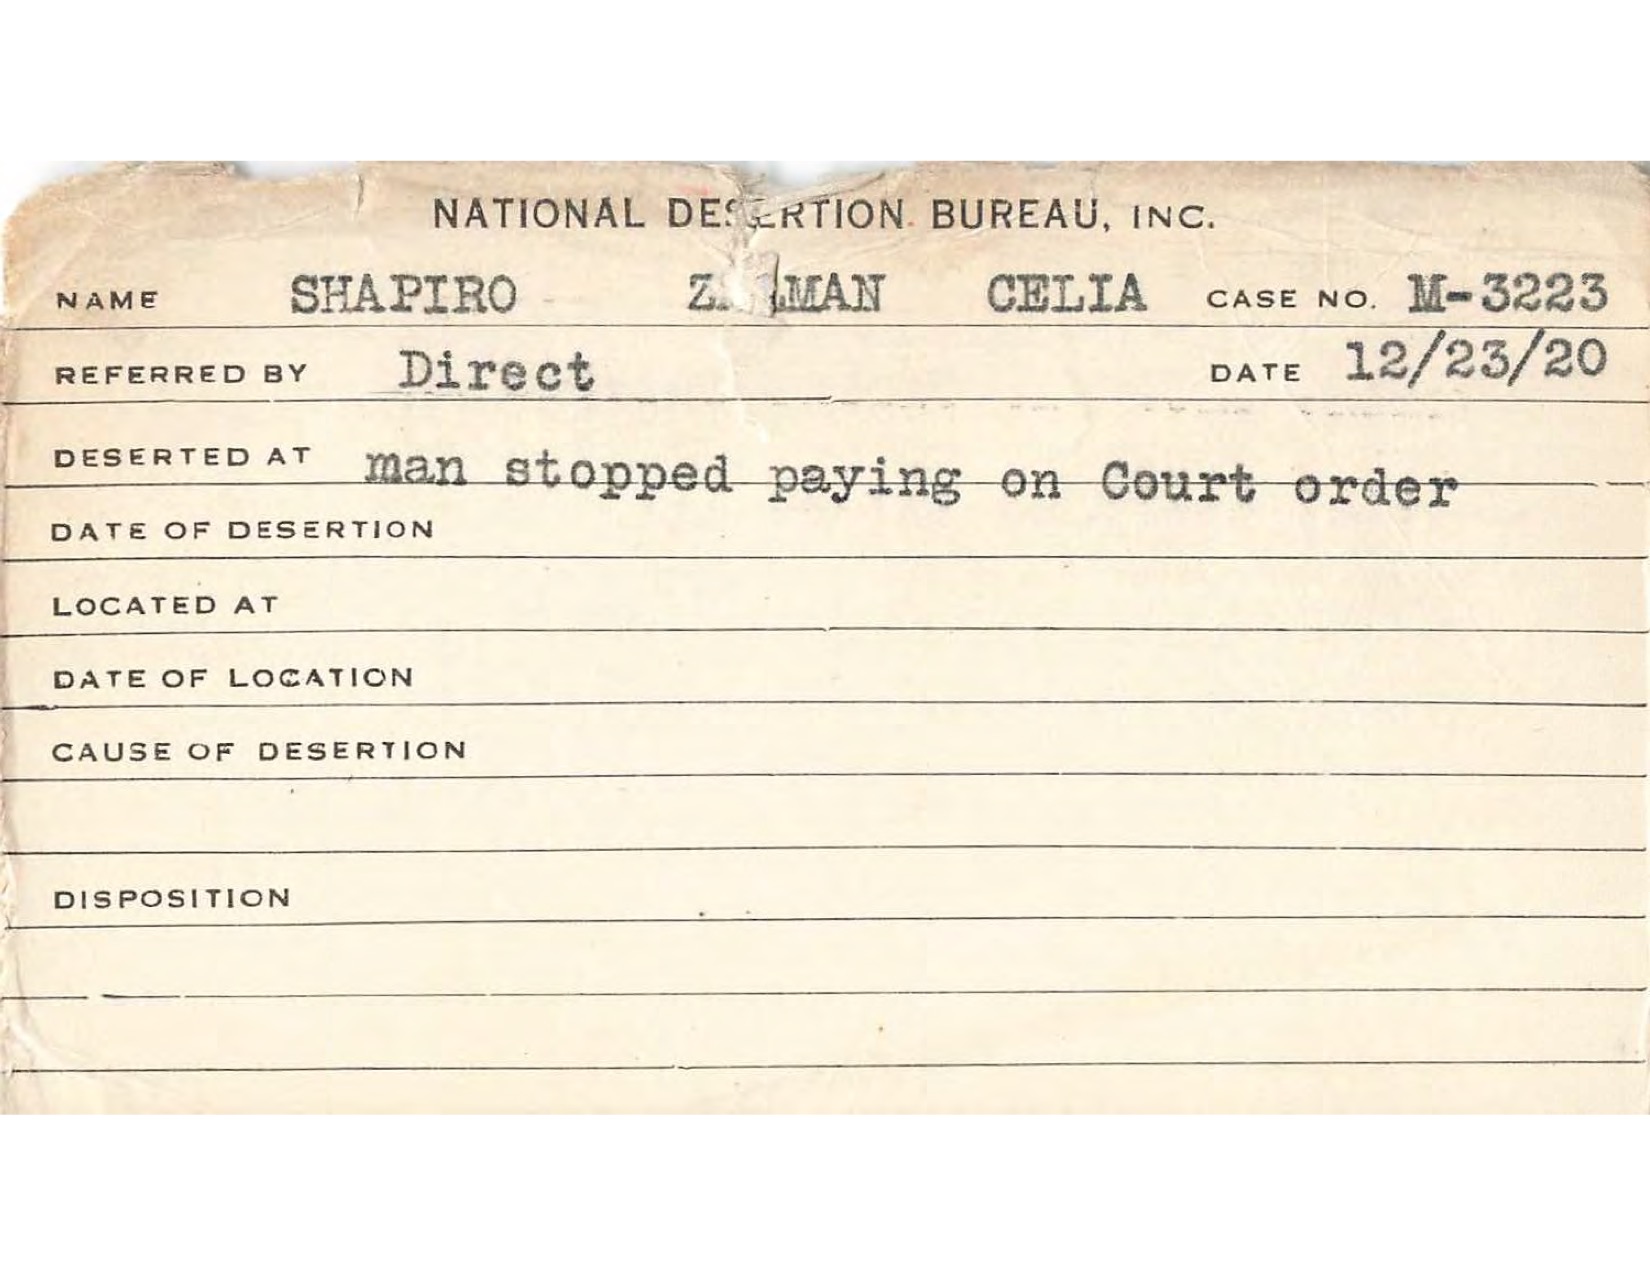 NATIONAL DESERTION BUREAU, INC.
NAME SHAPIRO ZALMAN CELIA CASE NO. M-3223
REFERRED BY Direct DATE 12/23/20
DESERTED AT man stopped paying on Court order
DATE OF DESERTION
LOCATED AT
DATE OF LOCATION
CAUSE OF DESERTION
DISPOSITION